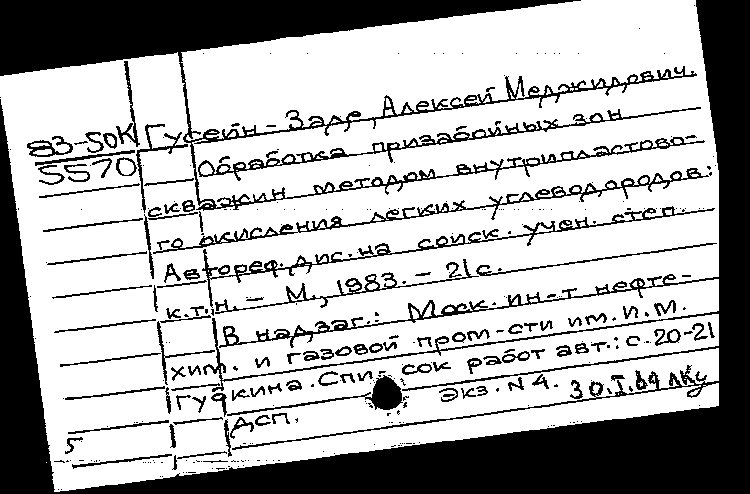 83-50К Гусейн-Заде, Алексей Меджидович.
5570 Обработка призабойных зон
скважин методом внутрипластово-
го окисления легких углеводородов:
Автореф. дис. на соиск. учен. степ.
к.т.н. - М., 1983. - 21 с.
В надзаг.: Моск. ин-т нефте-
хим. и газовой пром-сти им. И.М.
Губкина. Спи- сок работ авт.: с. 20-21
ДСП. Экз. N 4. 30.I.84
5